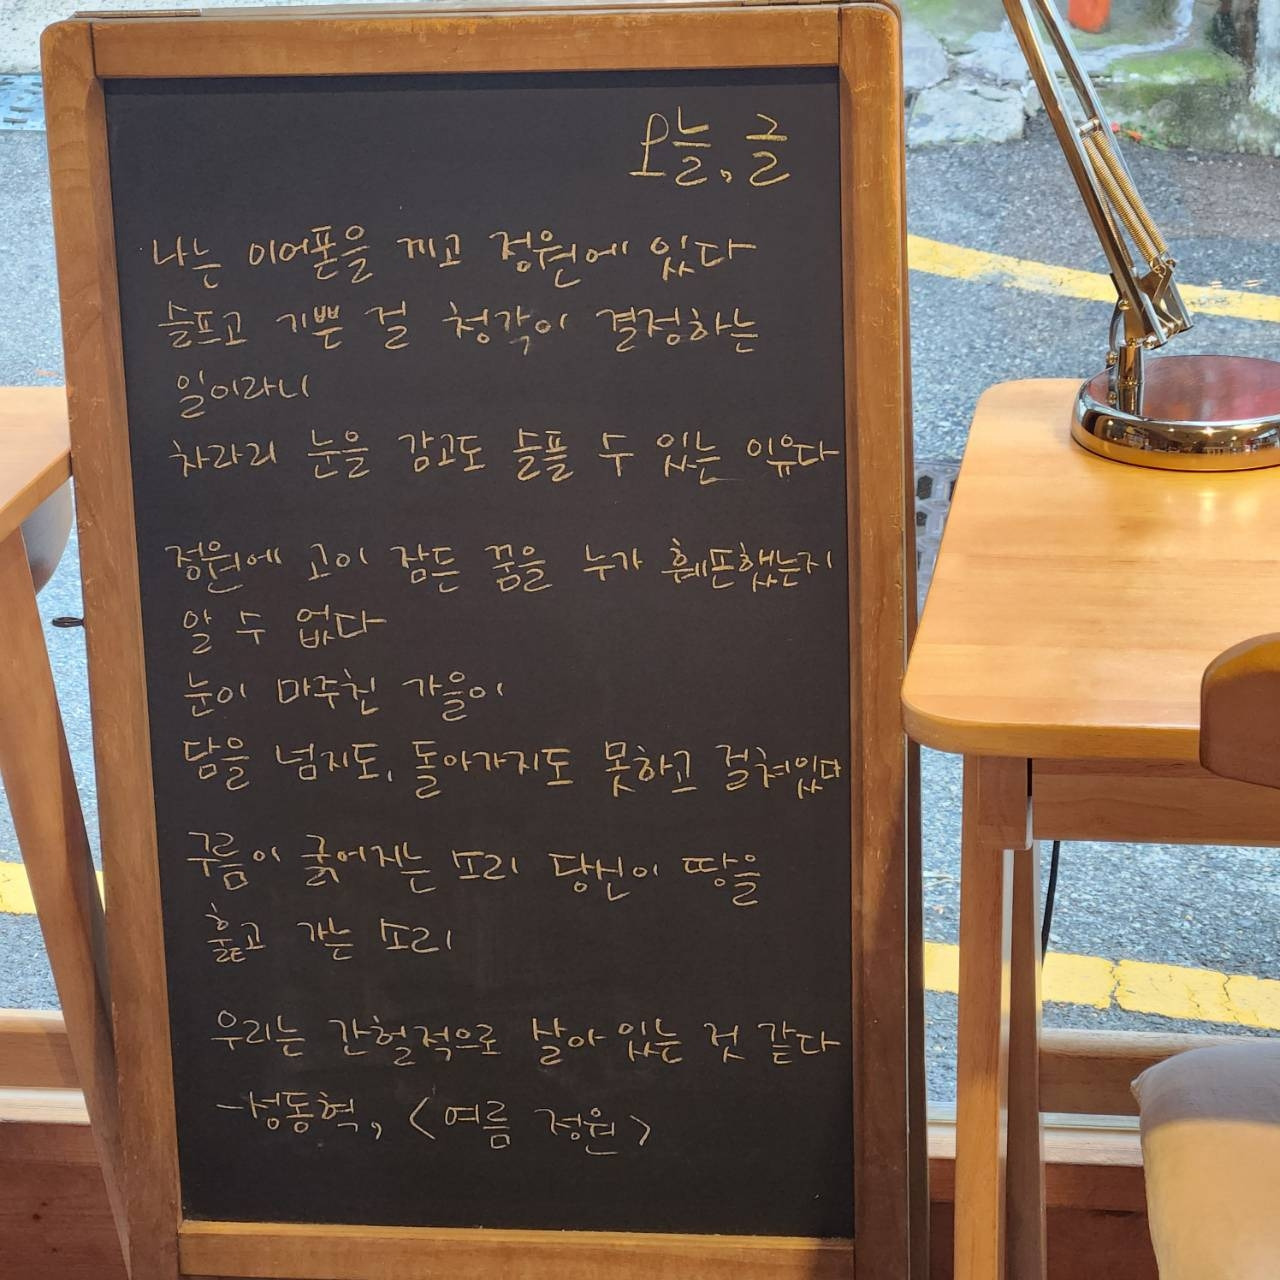 오늘, 글
나는 이어폰을 끼고 정원에 있다
슬프고 기쁜 걸 청각이 결정하는
일이라니
차라리 눈을 감고도 슬플 수 있는 이유다
정원에 고이 잠든 꿈을 누가 훼손했는지
알 수 없다
눈이 마주친 가을이
담을 넘지도, 돌아가지도 못하고 걸쳐있다
구름이 굵어지는 소리 당신이 땅을
훑고 가는 소리
우리는 간헐적으로 살아 있는 것 같다
-성동혁, <여름 정원>